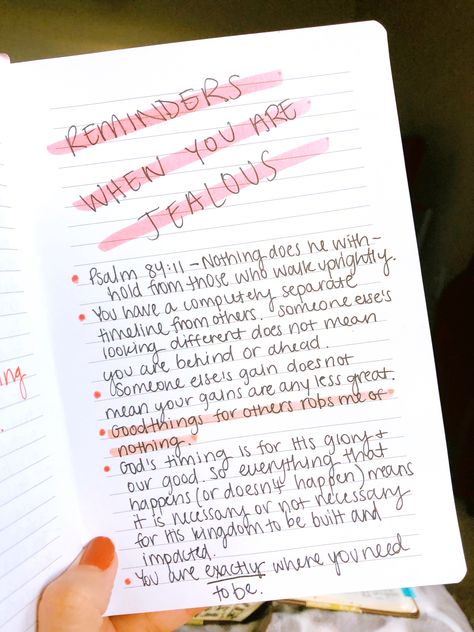 REMINDERS
WHEN YOU ARE
JEALOUS
• Psalm 84:11 - Nothing does he with-
hold from those who walk uprightly.
• You have a completely separate
timeline from others. someone else's
looking different does not mean
you are behind or ahead.
• someone else's gain does not
mean your gains are any less great.
• Good things for others robs me of
nothing.
• God's timing is for His glory &
our good. so everything that
happens (or doesn't happen) means
it is necessary or not necessary
for His kingdom to be built and
impacted.
• You are exactly where you need
to be.
ng